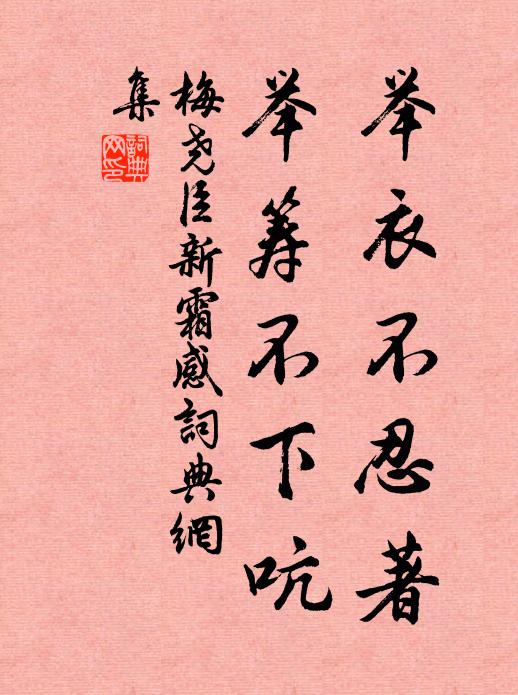 举衣不忍著
举筹不下吭
梅尧臣新霜感词典網
集
詞典
网印